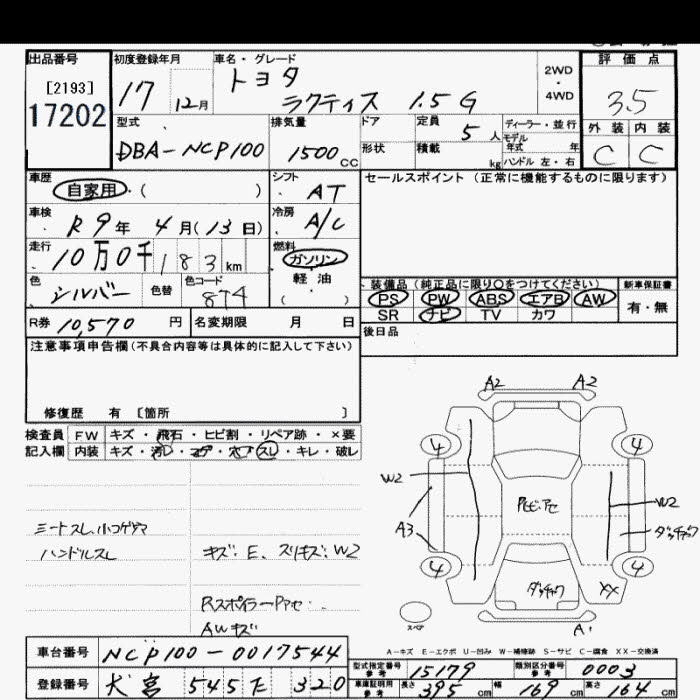 出品番号 初度登録年月 車名・グレード 2WD・4WD 評価点
[2193]
17202
17 12月 トヨタ ラクティス 1.5G 3.5
外装 内装
C C
型式 排気量 ドア 定員 5人 ディーラー・並行
モデル年式 年
DBA-NCP100 1500cc 形状 積載 kg ハンドル 左・右
車歴 シフト セールスポイント (正常に機能するものに限ります)
自家用・( ) AT
車検 冷房
R9年 4月(13日) A/C
走行 燃料
10万0千183km ガソリン
軽油
( )
色 シルバー 色替 色コード 874
装備品(純正品に限り○をつけてください) 新車保証書
PS PW ABS エアB AW 有・無
SR ナビ TV カワ
R券 10,570円 名変期限 月 日 後日品
注意事項申告欄(不具合内容等は具体的に記入して下さい)
修復歴 有 [箇所 ]
検査員 FW キズ・飛石・ヒビ割・リペア跡・×要
記入欄 内装 キズ・汚レ・コゲ・穴・スレ・キレ・破レ
シートスレ、小コゲ穴
ハンドルスレ
キズ:E、スリキズ:W2
AWキズ
A2 A2
4 4
W2 W2
A3
4 4
ダッチャク
XX
スペア
A1
A-キズ E-エクボ U-凹み W-補修跡 S-サビ C-腐食 XX-交換済
車台番号 NCP100-0017544
型式指定番号 参考 15179 類別区分番号 参考 0003
登録番号 大宮 545 320
車庫証明用 参考 長さ 395cm 幅 169cm 高さ 164cm